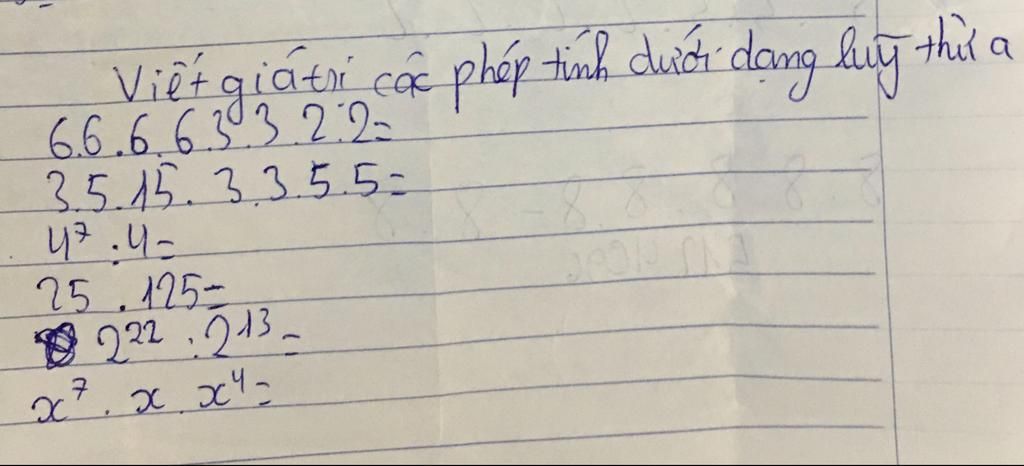 Viết giá trị các phép tính dưới dạng luỹ thừa
6.6.6.6.3.3.2.2=
3.5.15.3.3.5.5=
4⁷:4=
25.125=
2²²:2¹³=
x⁷.x.x⁴=